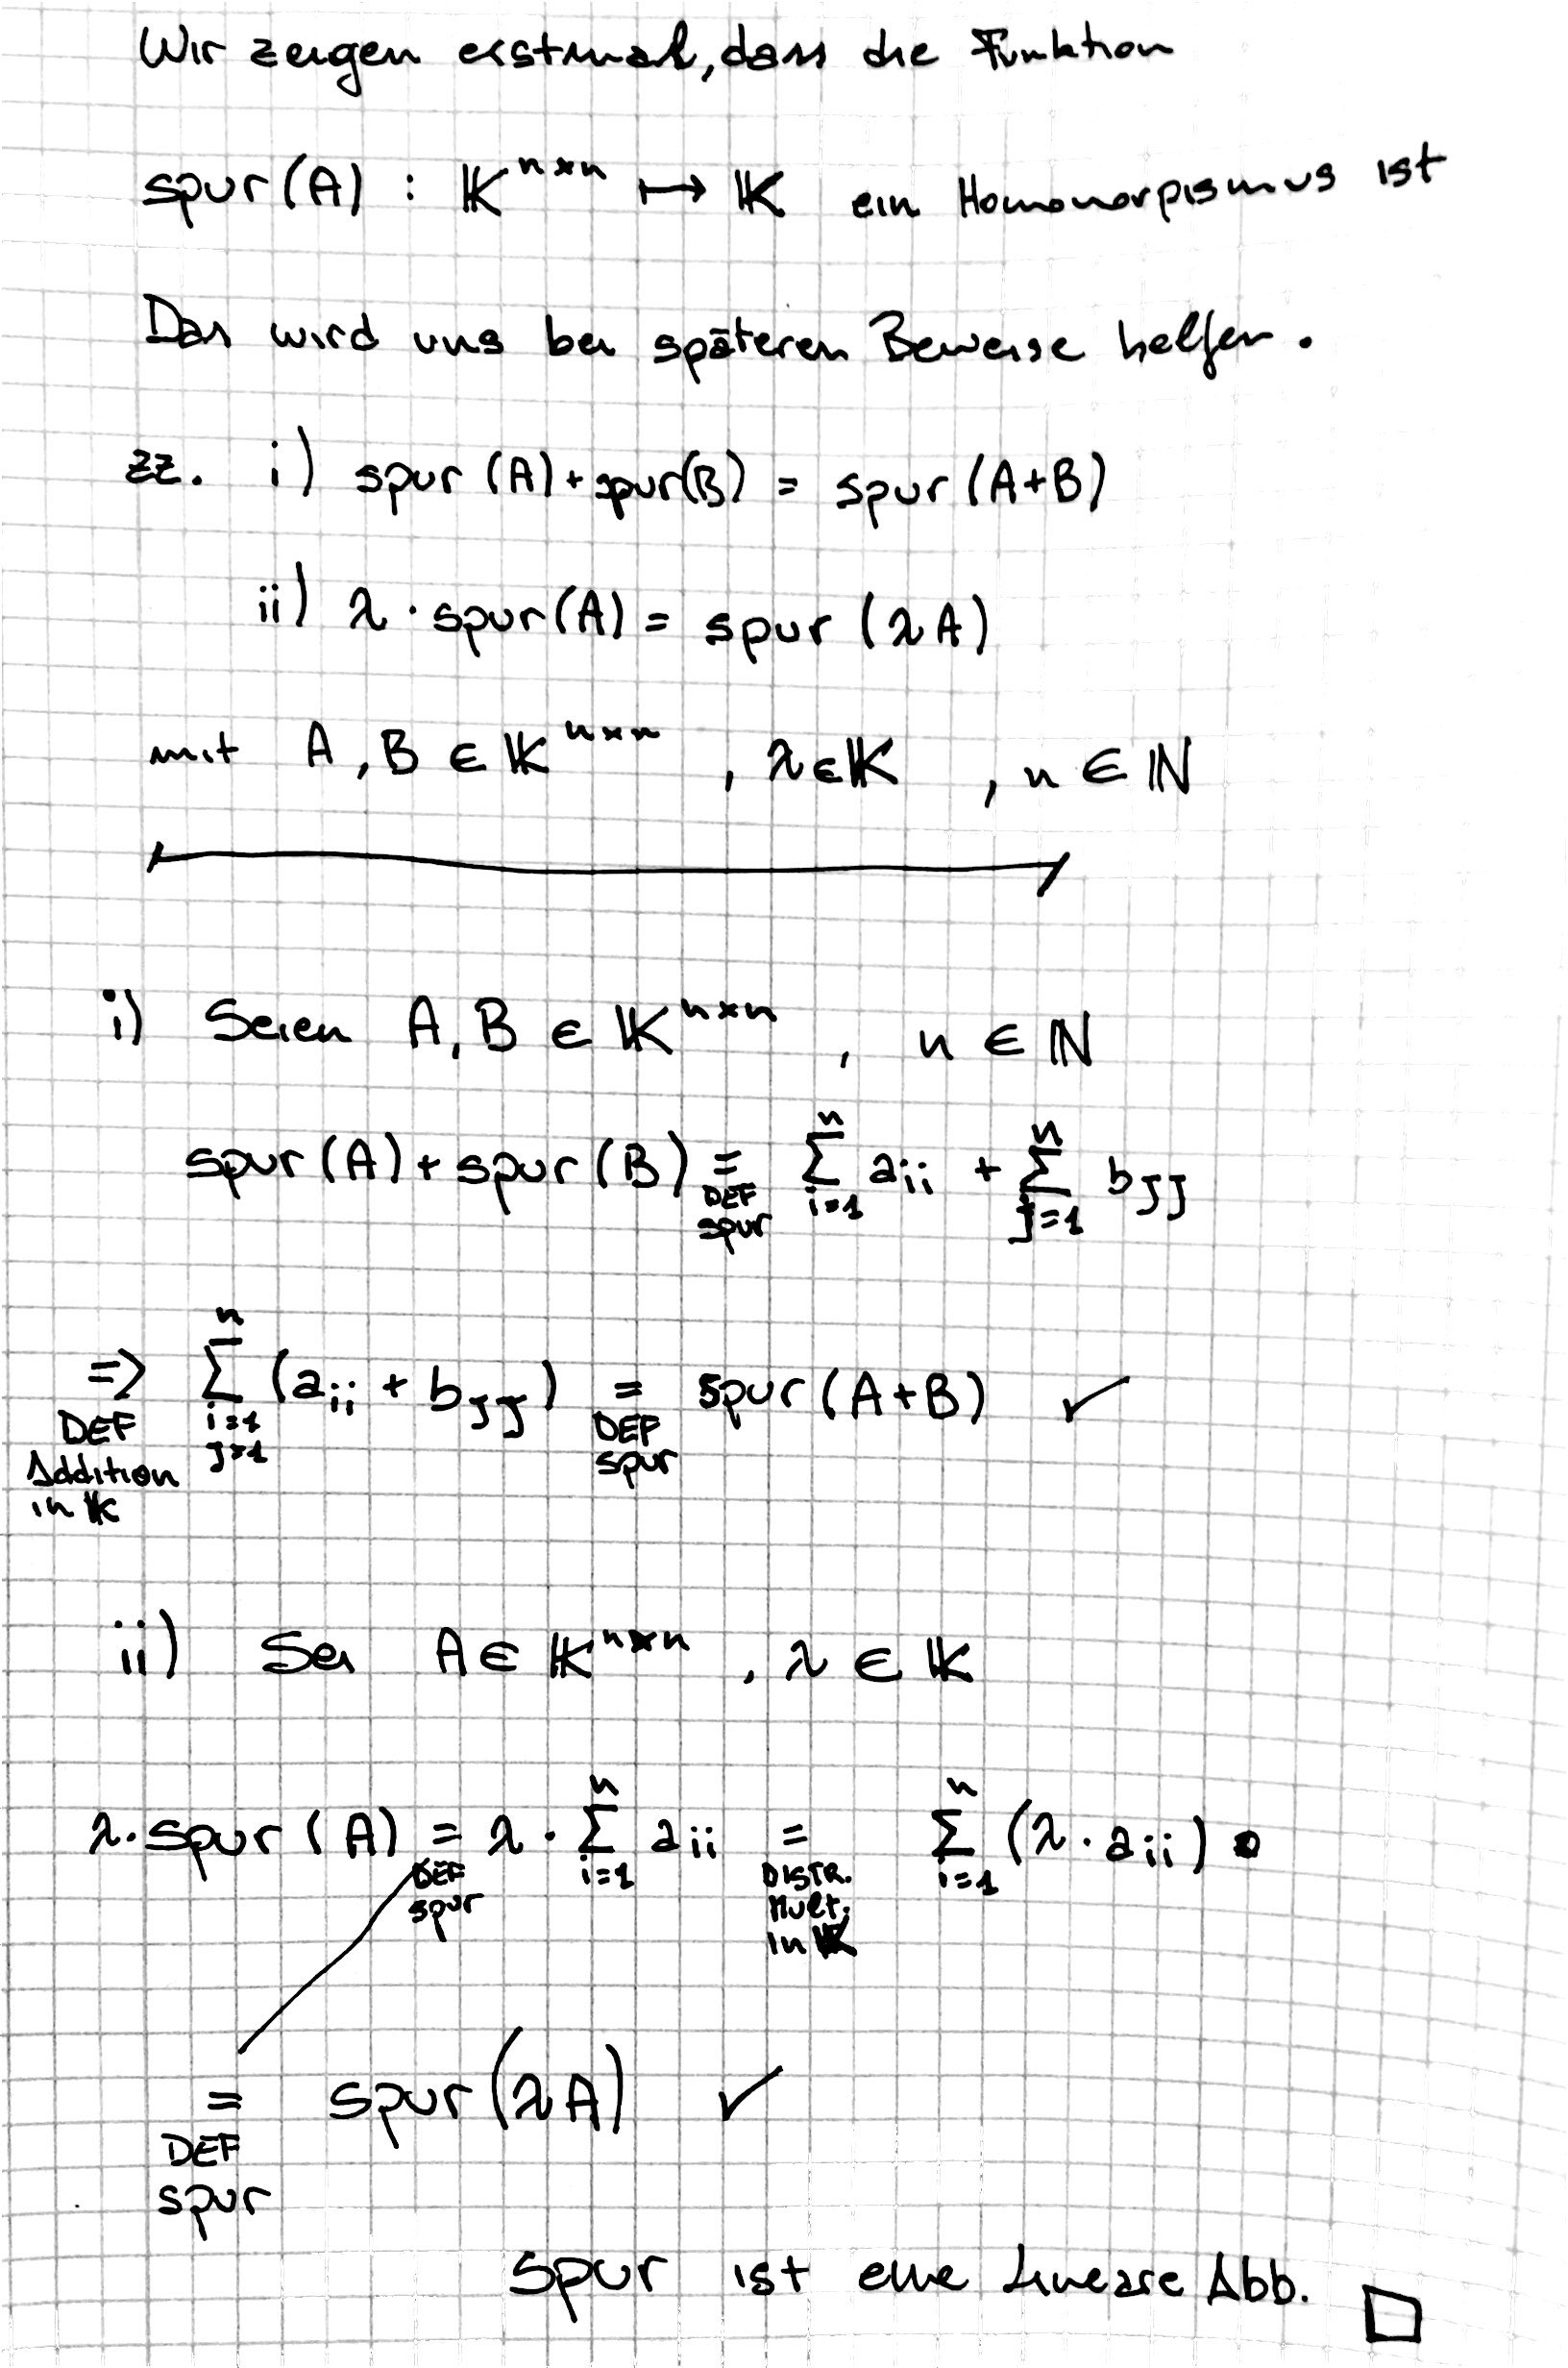 Wir zeigen erstmal, dass die Funktion
spur(A) : 𝕂^{n×n} ↦ 𝕂 ein Homomorpismus ist
Das wird uns bei späteren Beweise helfen.
zz. i) spur (A) + spur(B) = spur (A+B)
ii) λ · spur(A) = spur (λA)
mit A, B ∈ 𝕂^{n×n} , λ ∈ 𝕂 , n ∈ ℕ
i) Seien A, B ∈ 𝕂^{n×n} , n ∈ ℕ
spur (A) + spur (B) =_{DEF spur} ∑_{i=1}^{n} a_{ii} + ∑_{j=1}^{n} b_{jj}
=>_{DEF Addition in 𝕂} ∑_{i=1 j=1}^{n} (a_{ii} + b_{jj}) =_{DEF spur} spur (A+B) ✓
ii) Sei A ∈ 𝕂^{n×n} , λ ∈ 𝕂
λ · spur (A) =_{DEF spur} λ · ∑_{i=1}^{n} a_{ii} =_{DISTR. Mult. in 𝕂} ∑_{i=1}^{n} (λ · a_{ii})
=_{DEF spur} spur (λA) ✓
spur ist eine Lineare Abb. □